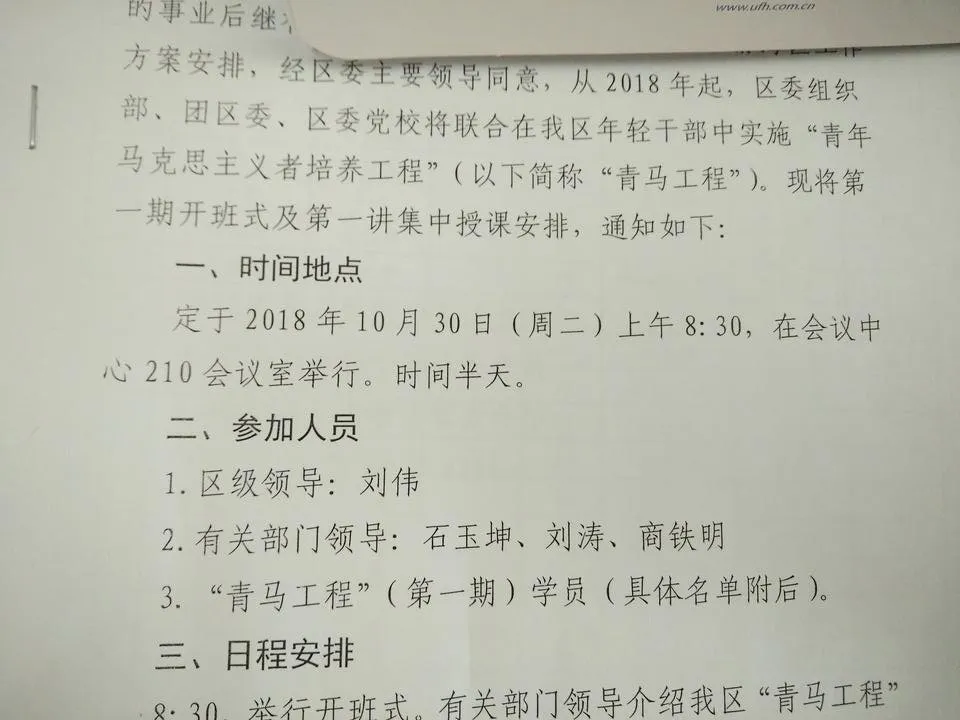 www.ufh.com.cn
的事业后继
方案安排，经区委主要领导同意，从2018年起，区委组织
部、团区委、区委党校将联合在我区年轻干部中实施“青年
马克思主义者培养工程”（以下简称“青马工程”）。现将第
一期开班式及第一讲集中授课安排，通知如下：
一、时间地点
定于2018年10月30日（周二）上午8:30，在会议中
心210会议室举行。时间半天。
二、参加人员
1.区级领导：刘伟
2.有关部门领导：石玉坤、刘涛、商铁明
3.“青马工程”（第一期）学员（具体名单附后）。
三、日程安排
8:30，举行开班式。有关部门领导介绍我区“青马工程”